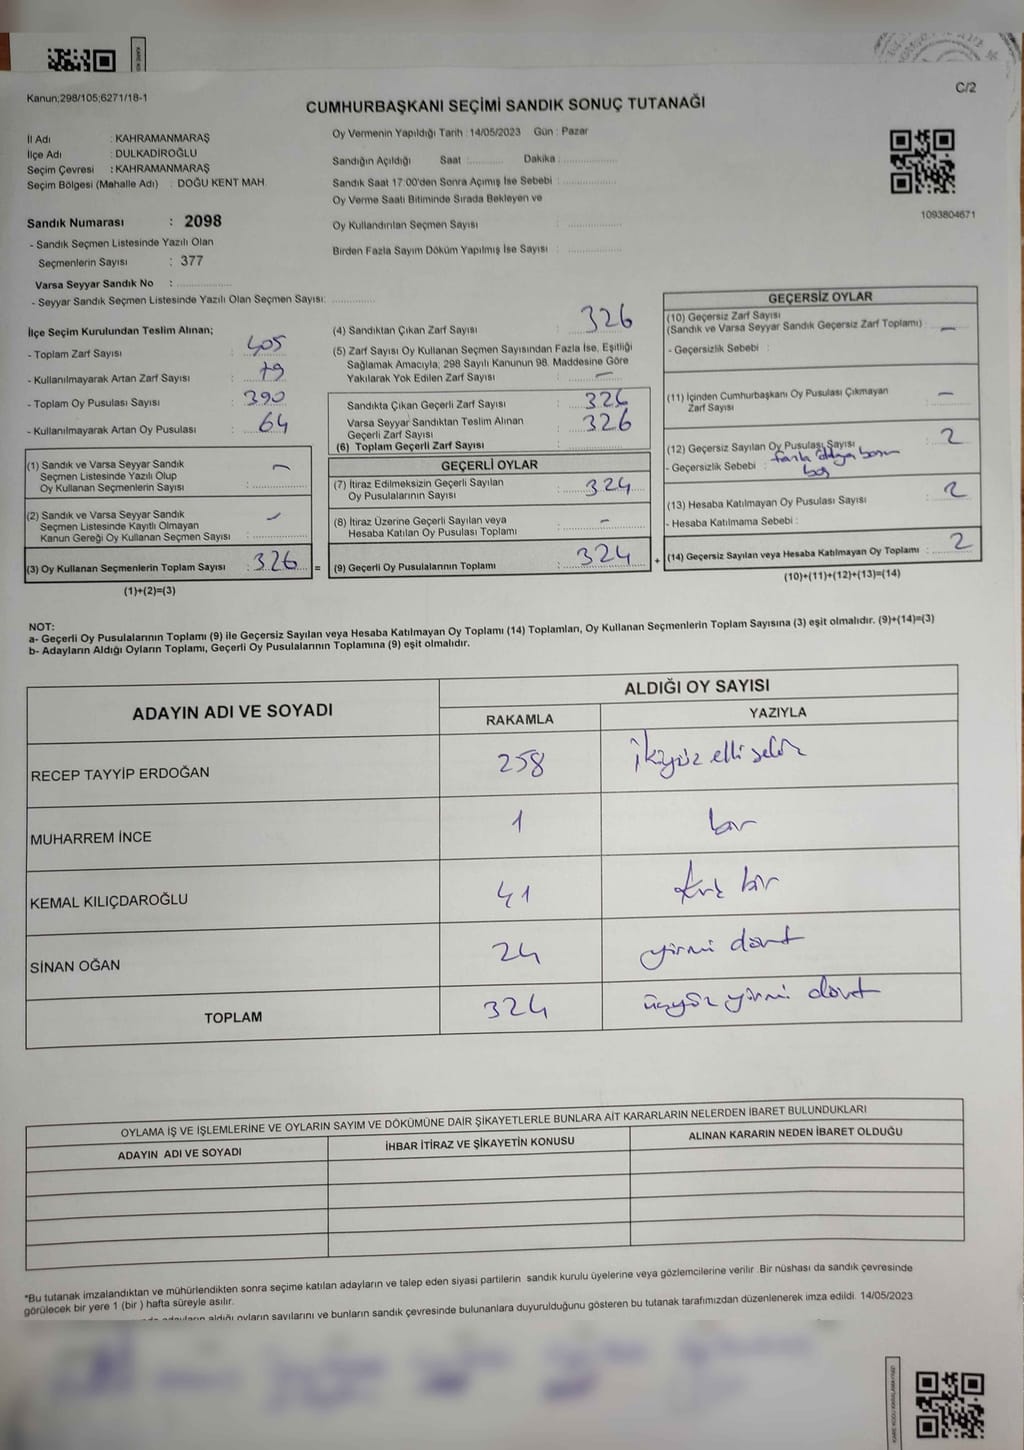 Kanun;298/105;6271/18-1
C/2
CUMHURBAŞKANI SEÇİMİ SANDIK SONUÇ TUTANAĞI
İl Adı : KAHRAMANMARAŞ
İlçe Adı : DULKADİROĞLU
Seçim Çevresi : KAHRAMANMARAŞ
Seçim Bölgesi (Mahalle Adı) : DOĞU KENT MAH.
Oy Vermenin Yapıldığı Tarih : 14/05/2023 Gün : Pazar
Sandığın Açıldığı Saat :........... Dakika :..................
Sandık Saat 17:00'den Sonra Açımış İse Sebebi :
Oy Verme Saati Bitiminde Sırada Bekleyen ve
Oy Kullandırılan Seçmen Sayısı :
Birden Fazla Sayım Döküm Yapılmış İse Sayısı :
1093804671
Sandık Numarası : 2098
- Sandık Seçmen Listesinde Yazılı Olan
Seçmenlerin Sayısı : 377
Varsa Seyyar Sandık No :
- Seyyar Sandık Seçmen Listesinde Yazılı Olan Seçmen Sayısı:
İlçe Seçim Kurulundan Teslim Alınan;
- Toplam Zarf Sayısı : 405
- Kullanılmayarak Artan Zarf Sayısı : 79
- Toplam Oy Pusulası Sayısı : 390
- Kullanılmayarak Artan Oy Pusulası : 64
(1) Sandık ve Varsa Seyyar Sandık
Seçmen Listesinde Yazılı Olup
Oy Kullanan Seçmenlerin Sayısı : –
(2) Sandık ve Varsa Seyyar Sandık
Seçmen Listesinde Kayıtlı Olmayan
Kanun Gereği Oy Kullanan Seçmen Sayısı : –
(3) Oy Kullanan Seçmenlerin Toplam Sayısı : 326 =
(1)+(2)=(3)
(4) Sandıktan Çıkan Zarf Sayısı : 326
(5) Zarf Sayısı Oy Kullanan Seçmen Sayısından Fazla İse, Eşitliği
Sağlamak Amacıyla, 298 Sayılı Kanunun 98. Maddesine Göre
Yakılarak Yok Edilen Zarf Sayısı : –
Sandıkta Çıkan Geçerli Zarf Sayısı : 326
Varsa Seyyar Sandıktan Teslim Alınan : 326
Geçerli Zarf Sayısı
(6) Toplam Geçerli Zarf Sayısı :
GEÇERLİ OYLAR
(7) İtiraz Edilmeksizin Geçerli Sayılan
Oy Pusulalarının Sayısı : 324
(8) İtiraz Üzerine Geçerli Sayılan veya
Hesaba Katılan Oy Pusulası Toplamı : –
(9) Geçerli Oy Pusulalarının Toplamı : 324 +
GEÇERSİZ OYLAR
(10) Geçersiz Zarf Sayısı
(Sandık ve Varsa Seyyar Sandık Geçersiz Zarf Toplamı) : –
- Geçersizlik Sebebi :
(11) İçinden Cumhurbaşkanı Oy Pusulası Çıkmayan
Zarf Sayısı : –
(12) Geçersiz Sayılan Oy Pusulası Sayısı : 2
- Geçersizlik Sebebi : fazla
boş
(13) Hesaba Katılmayan Oy Pusulası Sayısı : 2
- Hesaba Katılmama Sebebi :
(14) Geçersiz Sayılan veya Hesaba Katılmayan Oy Toplamı : 2
(10)+(11)+(12)+(13)=(14)
NOT:
a- Geçerli Oy Pusulalarının Toplamı (9) ile Geçersiz Sayılan veya Hesaba Katılmayan Oy Toplamı (14) Toplamları, Oy Kullanan Seçmenlerin Toplam Sayısına (3) eşit olmalıdır. (9)+(14)=(3)
b- Adayların Aldığı Oyların Toplamı, Geçerli Oy Pusulalarının Toplamına (9) eşit olmalıdır.
ADAYIN ADI VE SOYADI
ALDIĞI OY SAYISI
RAKAMLA YAZIYLA
RECEP TAYYİP ERDOĞAN 258 ikiyüz elli sekiz
MUHARREM İNCE 1 bir
KEMAL KILIÇDAROĞLU 41 kırk bir
SİNAN OĞAN 24 yirmi dört
TOPLAM 324 üçyüz yirmi dört
OYLAMA İŞ VE İŞLEMLERİNE VE OYLARIN SAYIM VE DÖKÜMÜNE DAİR ŞİKAYETLERLE BUNLARA AİT KARARLARIN NELERDEN İBARET BULUNDUKLARI
ADAYIN ADI VE SOYADI İHBAR İTİRAZ VE ŞİKAYETİN KONUSU ALINAN KARARIN NEDEN İBARET OLDUĞU
*Bu tutanak imzalandıktan ve mühürlendikten sonra seçime katılan adayların ve talep eden siyasi partilerin sandık kurulu üyelerine veya gözlemcilerine verilir .Bir nüshası da sandık çevresinde
görülecek bir yere 1 (bir ) hafta süreyle asılır.
adayların aldığı oyların sayılarını ve bunların sandık çevresinde bulunanlara duyurulduğunu gösteren bu tutanak tarafımızdan düzenlenerek imza edildi. 14/05/2023